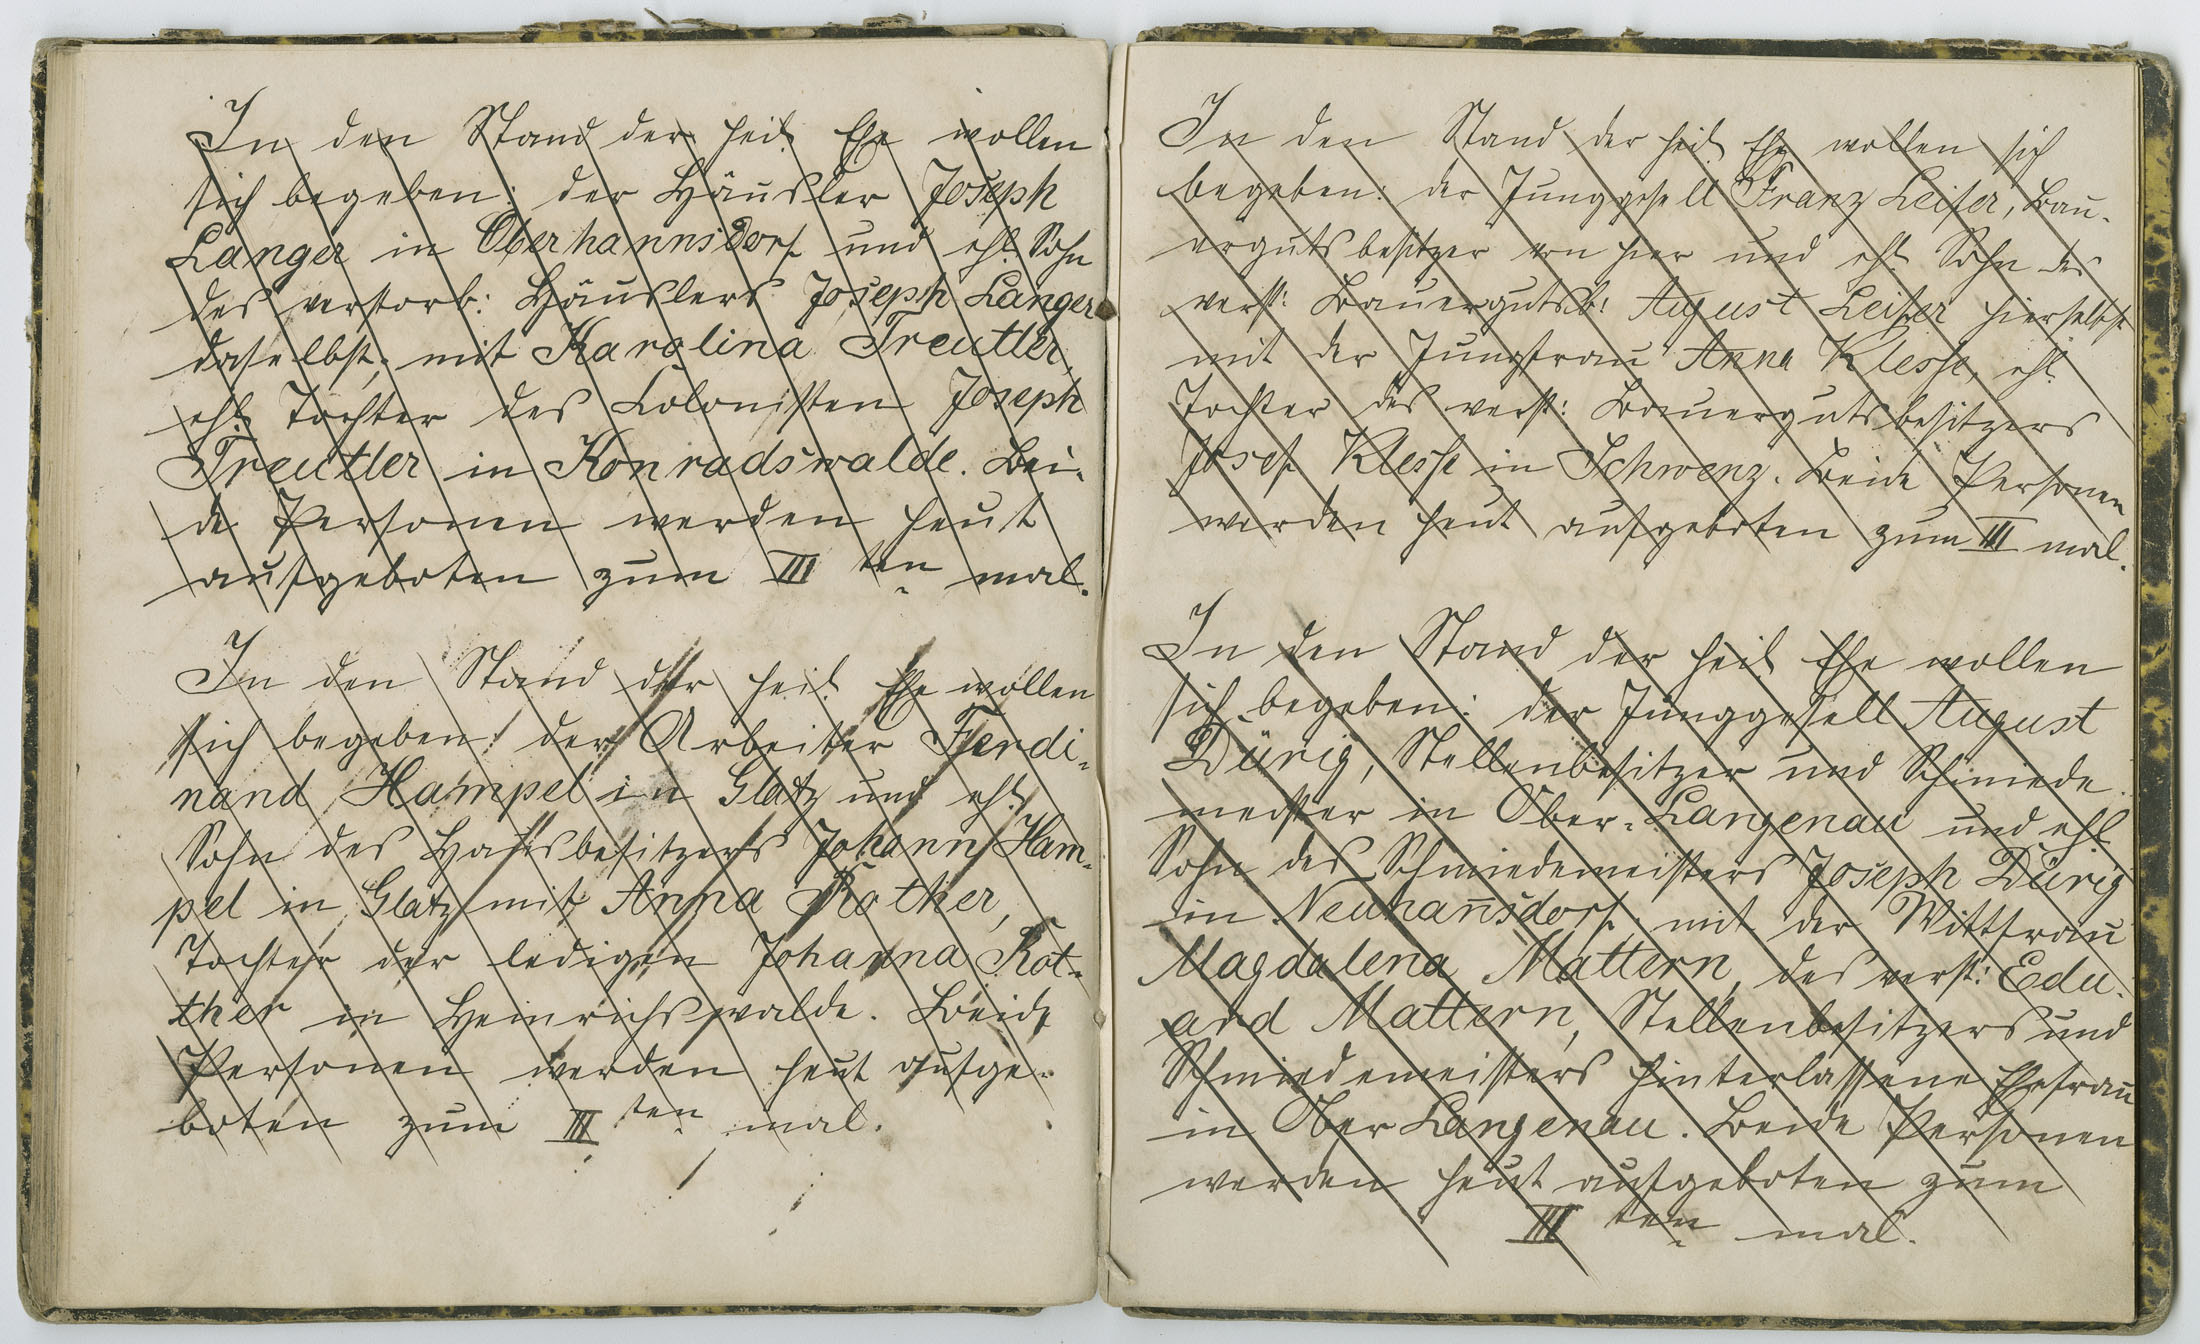 In den Stand der heil. Ehe wollen
sich begeben: der Häusler Joseph
Langer in Oberhannsdorf und ehl. Sohn
des verstorb: Häuslers Joseph Langer
daselbst, mit Karolina Treutler,
ehl. Tochter des Colonisten Joseph
Treutler in Konradswalde. Bei-
de Personen werden heut
aufgeboten zum III ten mal.
In den Stand der heil. Ehe wollen
sich begeben: der Arbeiter Ferdi-
nand Hampel in Glatz und ehl.
Sohn des Hausbesitzers Johann Ham-
pel in Glatz mit Anna Rother,
Tochter der ledigen Johanna Rot-
ther in Heinrichswalde. Beide
Personen werden heut aufge-
boten zum III ten mal.
In den Stand der heil. Ehe wollen sich
begeben: der Junggesell Franz Leiser, Bau-
ergutsbesitzer von hier und ehl. Sohn des
verst: Bauergutsb: August Leiser hierselbst
mit der Jungfrau Anna Klesse, ehl.
Tochter des verst: Bauergutsbesitzers
Josef Klesse in Schwenz. Beide Personen
werden heut aufgeboten zum III mal.
In den Stand der heil. Ehe wollen
sich begeben: der Junggesell August
Dürig, Stellenbesitzer und Schmiede-
meister in Ober-Langenau und ehl.
Sohn des Schmiedemeisters Joseph Dürig
in Neuhansdorf, mit der Wittfrau
Magdalena Mattern, des verst: Edu-
ard Mattern, Stellenbesitzers und
Schmiedemeisters hinterlassene Ehefrau
in Ober Langenau. Beide Personen
werden heut aufgeboten zum
III ten mal.